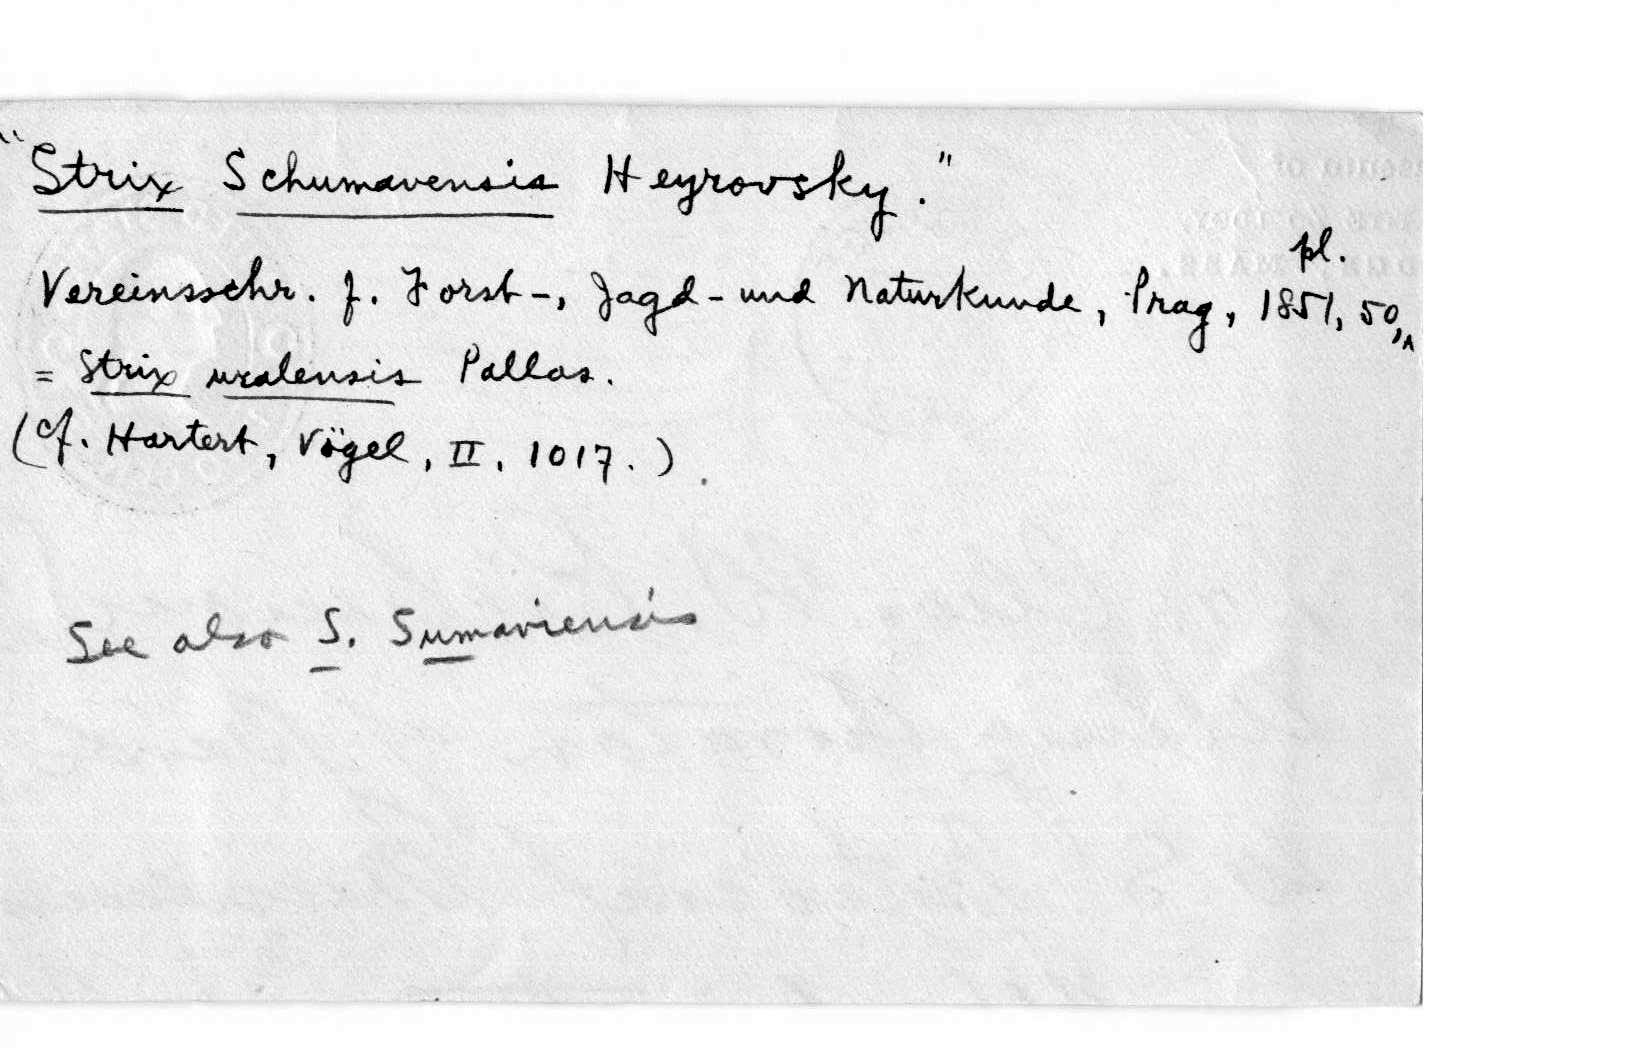 "Strix Schumavensis Heyrovsky."
Vereinsschr. f. Forst-, Jagd- und Naturkunde, Prag, 1851, 50, pl.
= Strix uralensis Pallas.
(cf. Hartert, Vögel, II, 1017.)
See also S. Sumaviensis